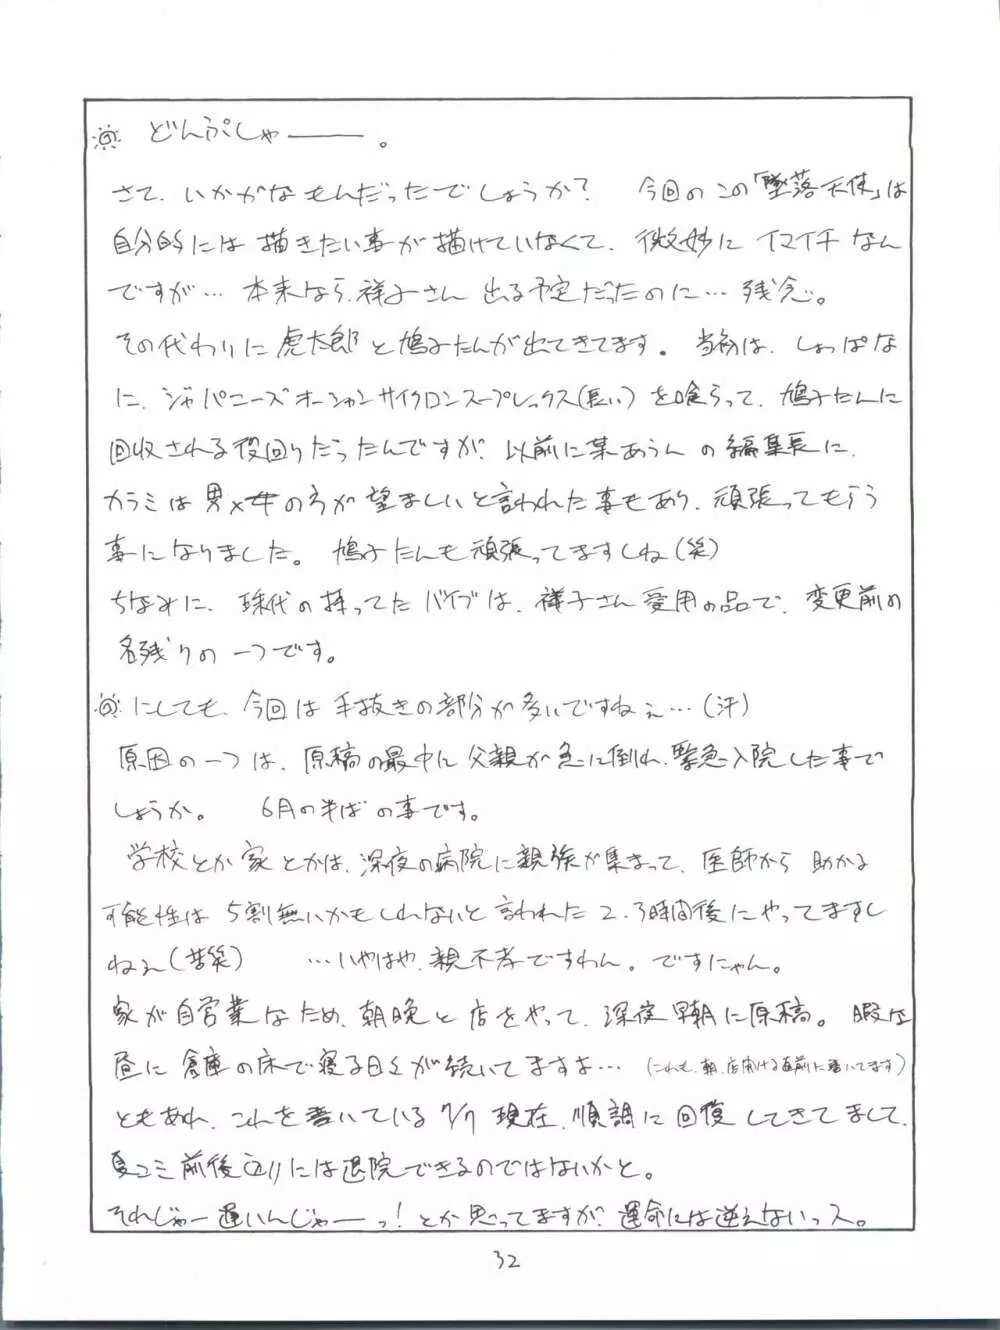 どんぷしゃ――。
さて、いかがなもんだったでしょうか？ 今回のこの「墜落天使」は
自分的には描きたい事が描けていなくて、微妙にイマイチなん
ですが… 本来なら、祥子さん出る予定だったのに…残念。
その代わりに虎太郎と鳩子たんが出てきてます。当初は、しょっぱな
に、ジャパニーズオーシャンサイクロンスープレックス(長い)を喰らって、鳩子たんに
回収される役回りだったんですが、以前に某あうんの編集長に、
カラミは男×女の方が望ましいと言われた事もあり、頑張ってもらう
事になりました。鳩子たんも頑張ってますしね(笑)
ちなみに、珠代の持ってたバイブは、祥子さん愛用の品で、変更前の
名残りの一つです。
にしても、今回は手抜きの部分が多いですねぇ…(汗)
原因の一つは、原稿の最中に父親が急に倒れ、緊急入院した事で
しょうか。 6月の半ばの事です。
学校とか家とかは、深夜の病院に親族が集まって、医師から助かる
可能性は5割無いかもしれないと言われた2、3時間後にやってますし
ねぇ(苦笑) …いやはや、親不孝ですわん。ですにゃん。
家が自営業なため、朝晩と店をやって、深夜早朝に原稿。暇な
昼に倉庫の床で寝る日々が続いてますよ…(これも、朝、店開ける直前に書いてます)
ともあれ、これを書いている7/7現在、順調に回復してきてまして、
夏コミ前後辺りには退院できるのではないかと。
それじゃー遅いんじゃーっ！とか思ってますが、運命には逆えないっス。
32